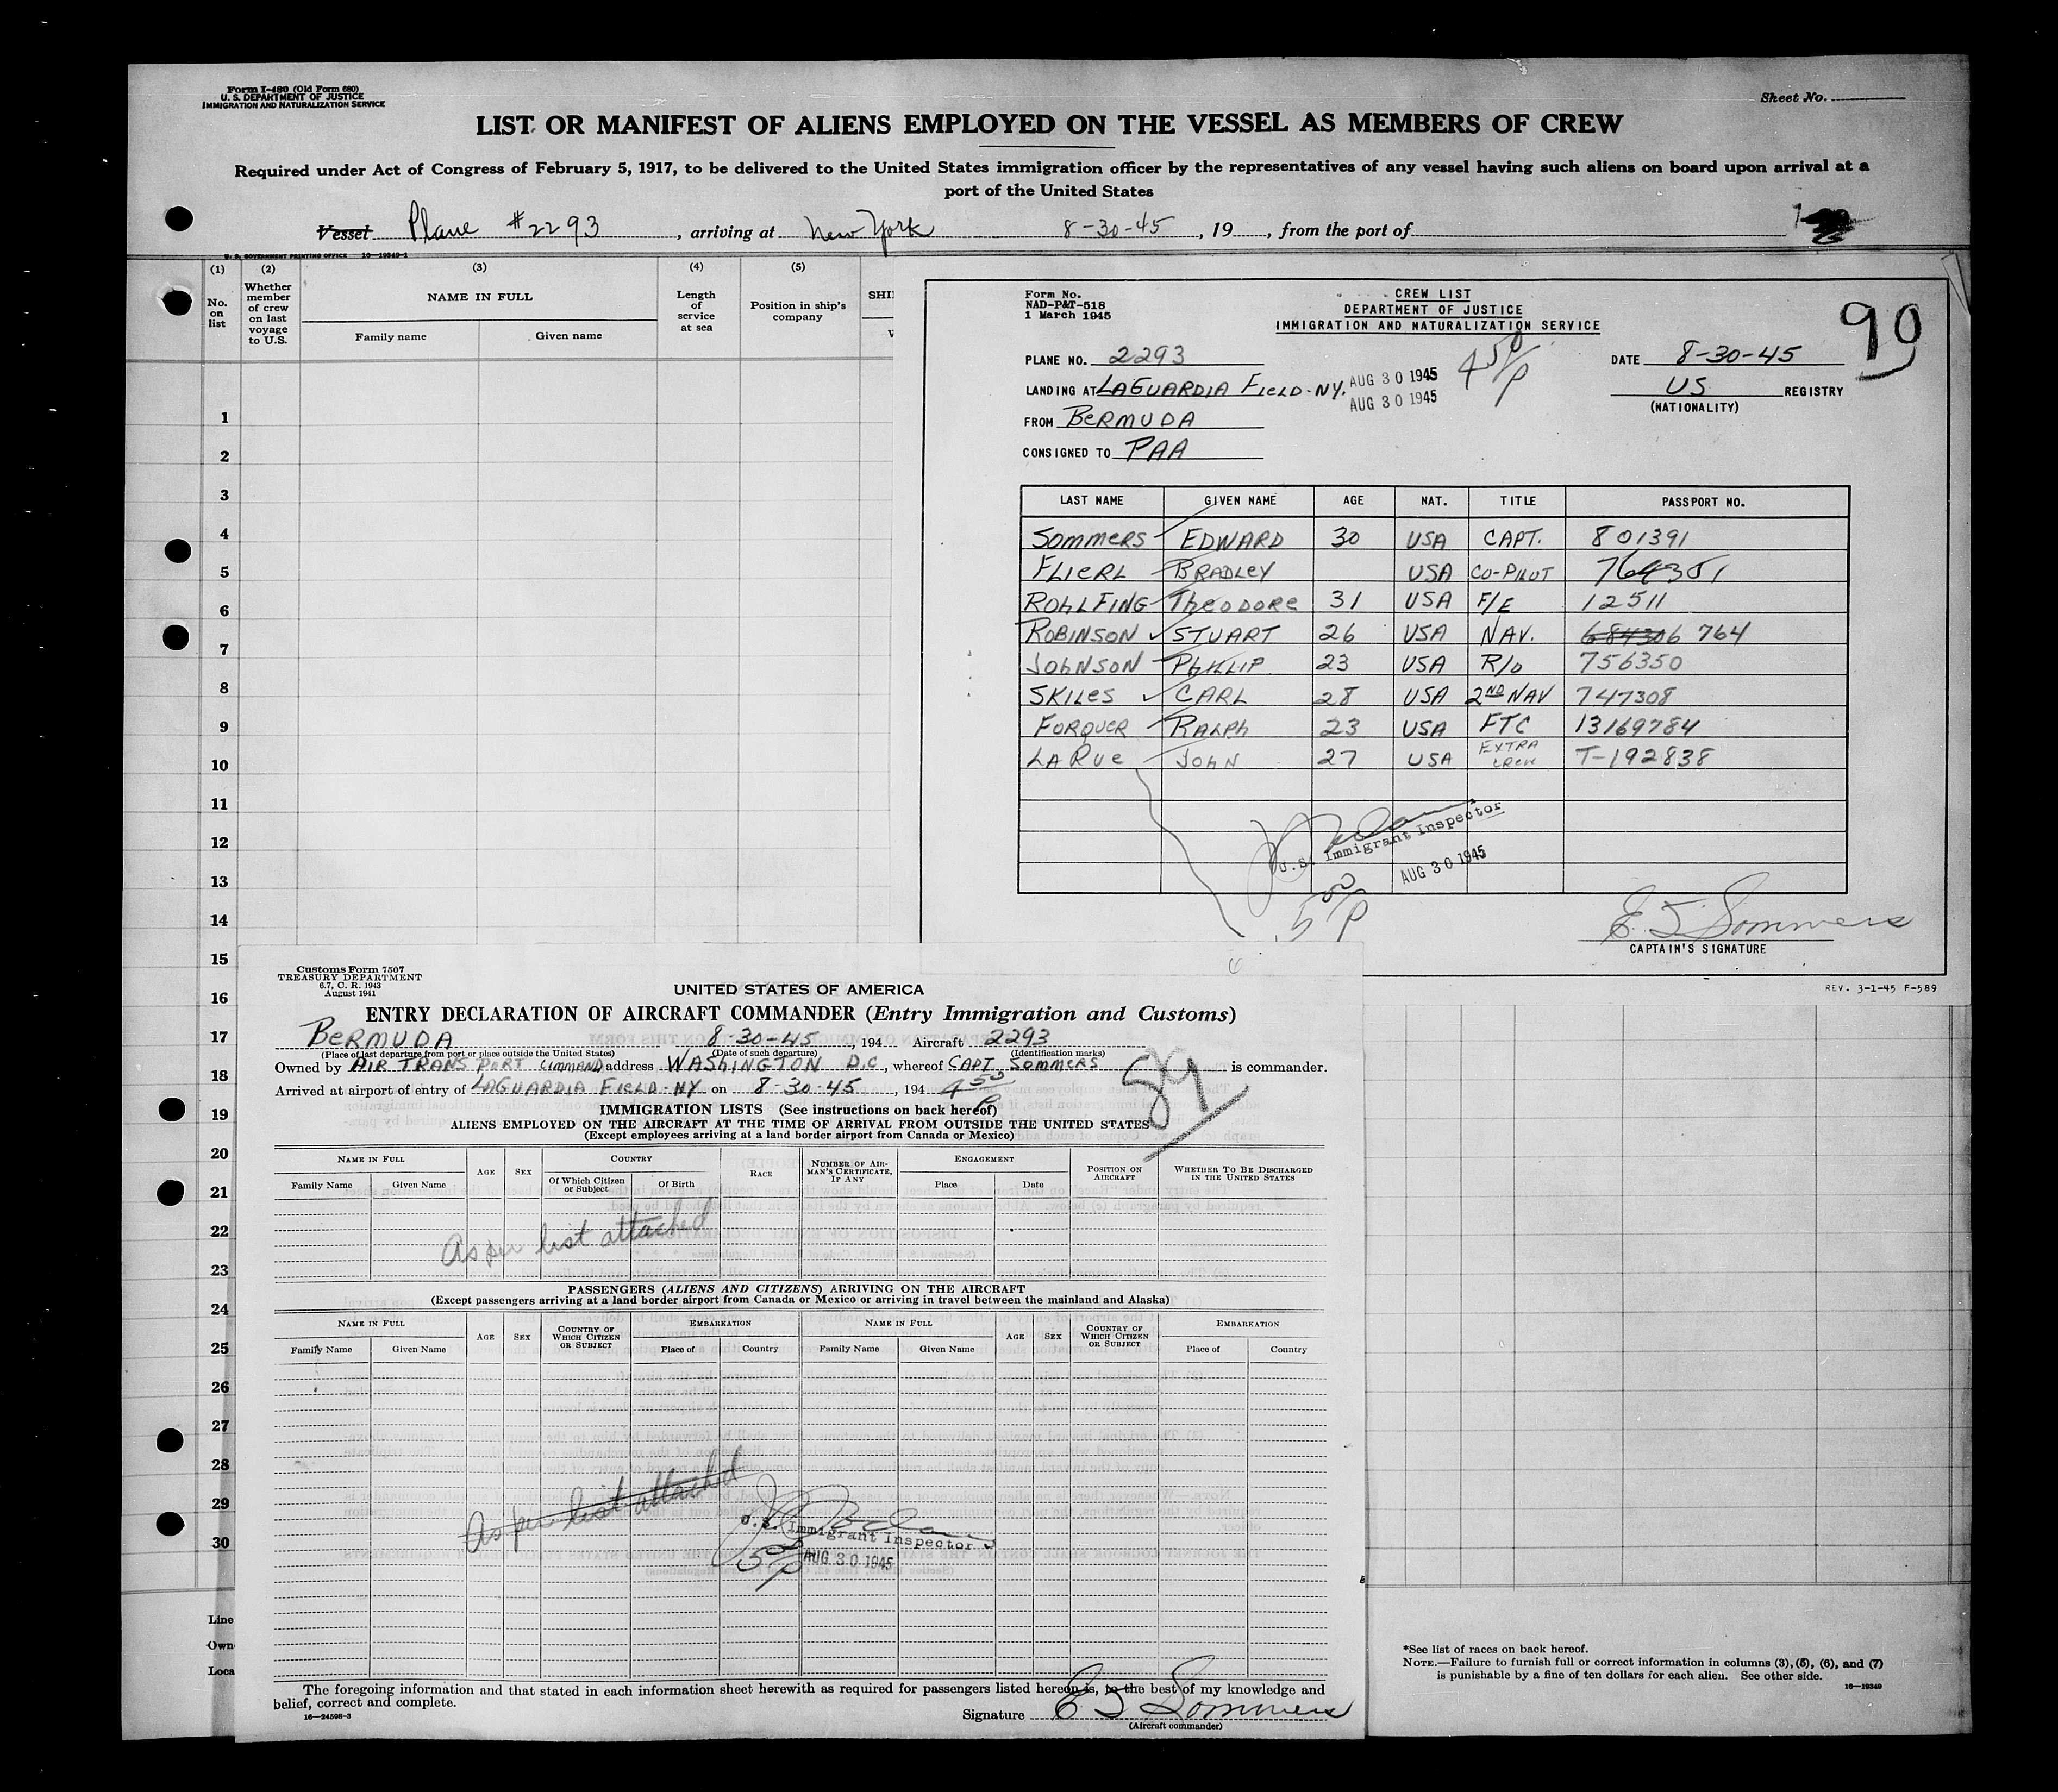 Form I-480 (Old Form 680)
U. S. DEPARTMENT OF JUSTICE
IMMIGRATION AND NATURALIZATION SERVICE
Sheet No.
LIST OR MANIFEST OF ALIENS EMPLOYED ON THE VESSEL AS MEMBERS OF CREW
Required under Act of Congress of February 5, 1917, to be delivered to the United States immigration officer by the representatives of any vessel having such aliens on board upon arrival at a
port of the United States
Vessel Plane #2293, arriving at New York 8-30-45, 19, from the port of
U. S. GOVERNMENT PRINTING OFFICE 16-19349-1
(1) (2) (3) (4) (5)
No. on list
Whether member of crew on last voyage to U.S.
NAME IN FULL
Family name Given name
Length of service at sea
Position in ship's company
SHI
1
2
3
4
5
6
7
8
9
10
11
12
13
14
15
16
17
18
19
20
21
22
23
24
25
26
27
28
29
30
Line
Own
Loca
Form No.
NAD-P&T-518
1 March 1945
CREW LIST
DEPARTMENT OF JUSTICE
IMMIGRATION AND NATURALIZATION SERVICE
99
PLANE NO. 2293
DATE 8-30-45
LANDING AT LAGUARDIA FIELD-NY. AUG 30 1945
AUG 30 1945
4 50/P
US REGISTRY
(NATIONALITY)
FROM BERMUDA
CONSIGNED TO PAA
LAST NAME GIVEN NAME AGE NAT. TITLE PASSPORT NO.
SOMMERS EDWARD 30 USA CAPT. 801391
FLIERL BRADLEY USA CO-PILOT 764351
ROHLFING THEODORE 31 USA F/E 12511
ROBINSON STUART 26 USA NAV. 684306 764
JOHNSON PHILLIP 23 USA R/O 756350
SKILES CARL 28 USA 2ND NAV 747308
FORQUER RALPH 23 USA FTC 13169784
LARUE JOHN 27 USA EXTRA CREW T-192838
U.S. Immigrant Inspector
AUG 30 1945
5 00/P
E S Sommers
CAPTAIN'S SIGNATURE
REV. 3-1-45 F-589
Customs Form 7507
TREASURY DEPARTMENT
6.7, C. R. 1943
August 1941
UNITED STATES OF AMERICA
ENTRY DECLARATION OF AIRCRAFT COMMANDER (Entry Immigration and Customs)
BERMUDA 8-30-45, 194 Aircraft 2293
(Place of last departure from port or place outside the United States) (Date of such departure) (Identification marks)
Owned by AIR TRANSPORT COMMAND address WASHINGTON D.C., whereof CAPT SOMMERS is commander.
Arrived at airport of entry of LAGUARDIA FIELD-NY on 8-30-45, 194 4 50 P
89
IMMIGRATION LISTS (See instructions on back hereof)
ALIENS EMPLOYED ON THE AIRCRAFT AT THE TIME OF ARRIVAL FROM OUTSIDE THE UNITED STATES
(Except employees arriving at a land border airport from Canada or Mexico)
NAME IN FULL AGE SEX COUNTRY RACE NUMBER OF AIRMAN'S CERTIFICATE, IF ANY ENGAGEMENT POSITION ON AIRCRAFT WHETHER TO BE DISCHARGED IN THE UNITED STATES
Family Name Given Name Of Which Citizen or Subject Of Birth Place Date
As per list attached
PASSENGERS (ALIENS AND CITIZENS) ARRIVING ON THE AIRCRAFT
(Except passengers arriving at a land border airport from Canada or Mexico or arriving in travel between the mainland and Alaska)
NAME IN FULL AGE SEX COUNTRY OF WHICH CITIZEN OR SUBJECT EMBARKATION NAME IN FULL AGE SEX COUNTRY OF WHICH CITIZEN OR SUBJECT EMBARKATION
Family Name Given Name Place of Country Family Name Given Name Place of Country
As per list attached
U.S. Immigrant Inspector
5 00/P AUG 30 1945
The foregoing information and that stated in each information sheet herewith as required for passengers listed hereon is, to the best of my knowledge and
belief, correct and complete.
16-24598-3
Signature E S Sommers
(Aircraft commander)
*See list of races on back hereof.
NOTE.—Failure to furnish full or correct information in columns (3), (5), (6), and (7)
is punishable by a fine of ten dollars for each alien. See other side.
16-19349